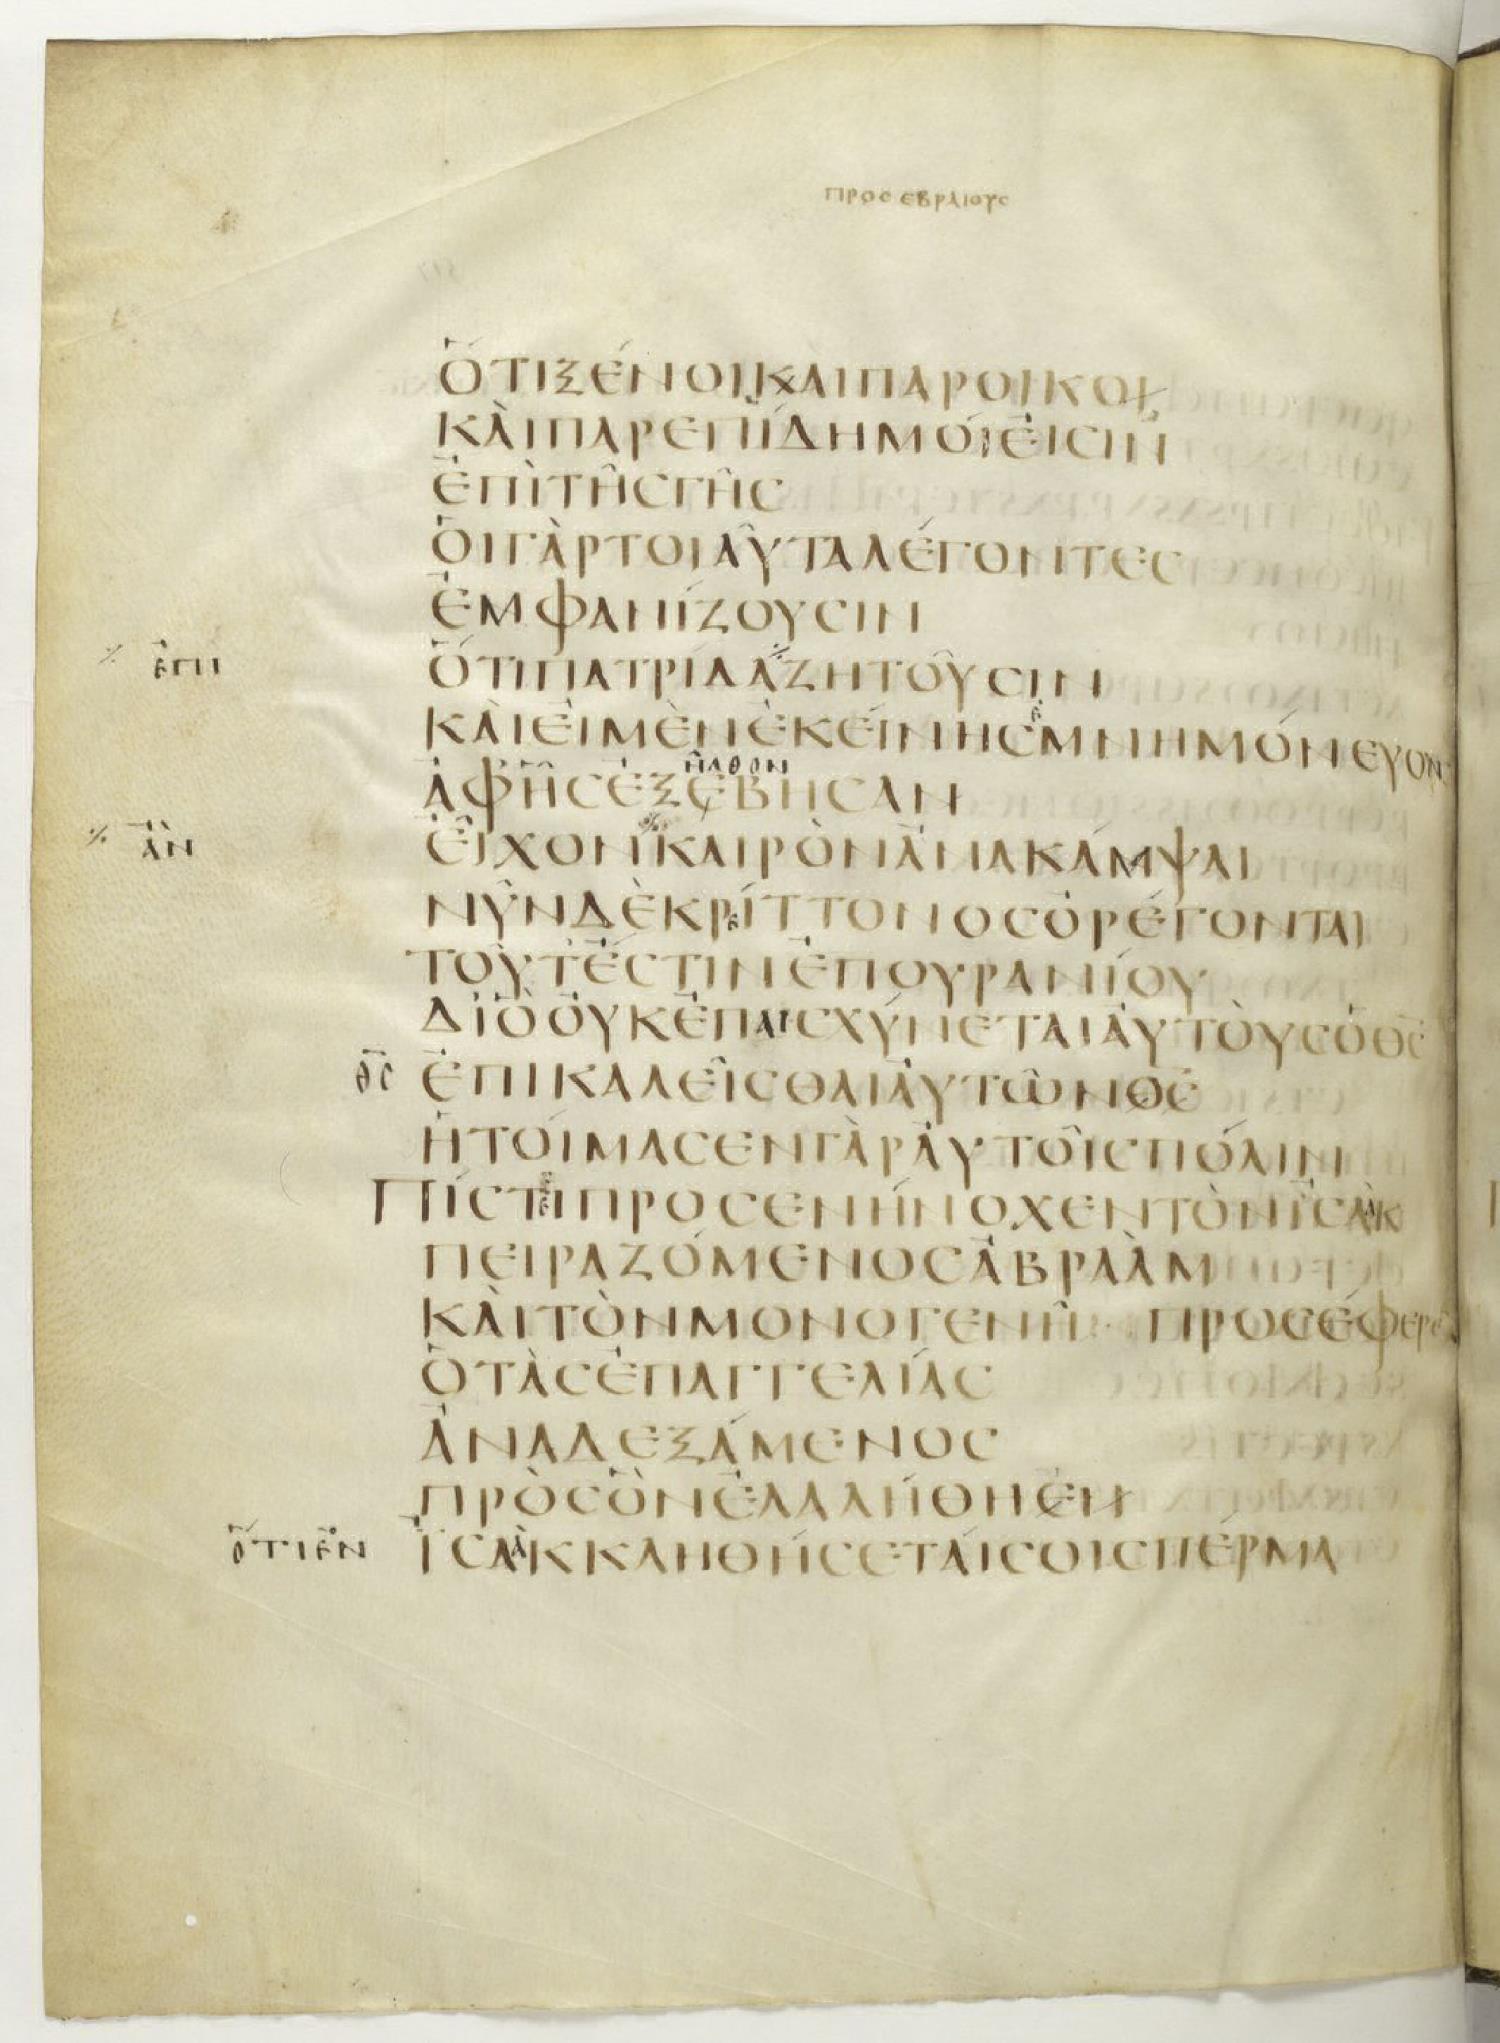 ΠΡΟϹ ΕΒΡΑΙΟΥϹ
ὍΤΙΞΈΝΟΙΚΑΙΠΑΡΟΙΚΟΙ
ΚᾺΙΠΑΡΕΠΊΔΗΜΌΙἘΙϹΙΝ
ἘΠῚΤΗ͂ϹΓΗ͂Ϲ
ὉΙΓᾺΡΤΟΙΑΥ͂ΤΑΛΈΓΟΝΤΕϹ
ἘΜΦΑΝΊΖΟΥϹΙΝ
ἘΠΙ
ὍΤΙΠΑΤΡΊΔΑΖΗΤΟΥ͂ϹΙΝ
ΚᾺΙἘΙΜῈΝἘΚΕΊΝΗϹΜΝΗΜΌΝΕΥΟΝ
ΗΛΘΟΝ
ἈΦΗ͂ϹἘΞΕΒΗϹΑΝ
ἊΝ
ἘΙ͂ΧΟΝΚΑΙΡῸΝἈΝΑΚΆΜΨΑΙ
ΝΥ͂ΝΔῈΚΡΊΤΤΟΝΟϹὈΡΈΓΟΝΤΑΙ
ΤΟΥΤΈϹΤΙΝἘΠΟΥΡΑΝΊΟΥ
ΔΙῸὈΥΚἘΠΑΙϹΧΎΝΕΤΑΙἈΥΤῸΥϹὉΘϹ
ΘϹ ἘΠΙΚΑΛΕΙ͂ϹΘΑΙἈΥΤΩ͂ΝΘϹ
ἩΤΟΊΜΑϹΕΝΓᾺΡἈΥΤΟΙ͂ϹΠΌΛΙΝ
ΠΊϹΤΙΠΡΟϹΕΝΗΝΟΧΕΝΤῸΝἸϹΑᾺΚ
ΠΕΙΡΑΖΌΜΕΝΟϹἈΒΡΑᾺΜ
ΚᾺΙΤῸΝΜΟΝΟΓΕΝΗ͂ ΠΡΟϹΈΦΕΡΕ
ὉΤᾺϹἘΠΑΓΓΕΛΊΑϹ
ἈΝΑΔΕΞΆΜΕΝΟϹ
ΠΡῸϹὋΝἘΛΑΛΉΘΗΕΝ
ὍΤΙἘΝ ἸϹΑᾺΚΚΛΗΘΉϹΕΤΆΙϹΟΙϹΠΈΡΜΑ